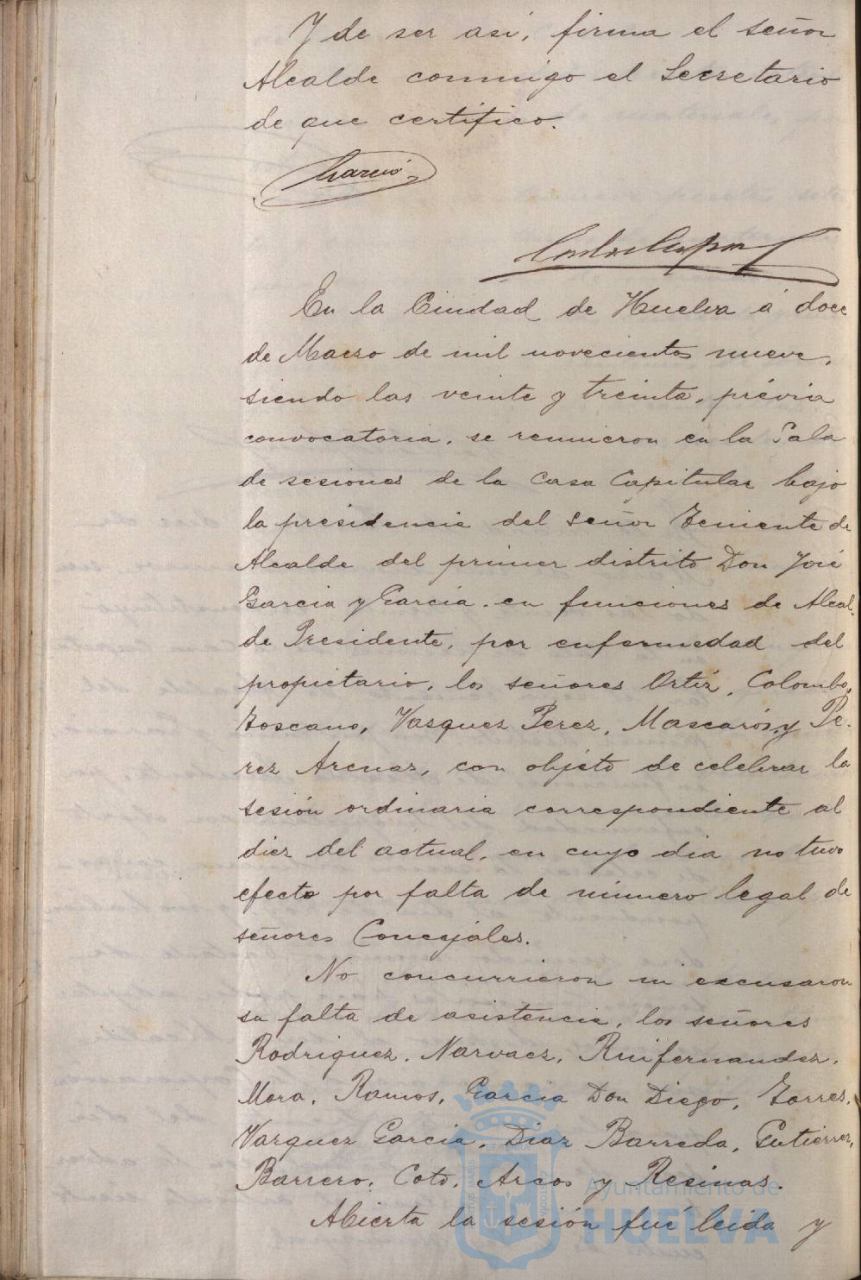 Y de ser así, firma el señor
Alcalde conmigo el Secretario
de que certifico.
García
En la Ciudad de Huelva á doce
de Marzo de mil novecientos nueve,
siendo las veinte y treinta, prévia
convocatoria, se reunieron en la Sala
de sesiones de la Casa Capitular bajo
la presidencia del señor Teniente de
Alcalde del primer distrito Don José
Garcia y García, en funciones de Alcal-
de Presidente, por enfermedad del
propietario, los señores Ortiz, Colombo,
Toscano, Vasquez Perez, Mascarós, y Pe-
rez Arenas, con objeto de celebrar la
sesión ordinaria correspondiente al
diez del actual, en cuyo dia no tuvo
efecto por falta de número legal de
señores Concejales.
No concurrieron ni excusaron
su falta de asistencia, los señores
Rodriguez, Narvaez, Ruifernandez,
Mora, Ramos, Garcia Don Diego, Torres,
Vazquez Garcia, Diaz Barreda, Gutierrez,
Barrero, Coto, Arcos y Resinas.
Abierta la sesión fué leida y
Ayuntamiento de
HUELVA